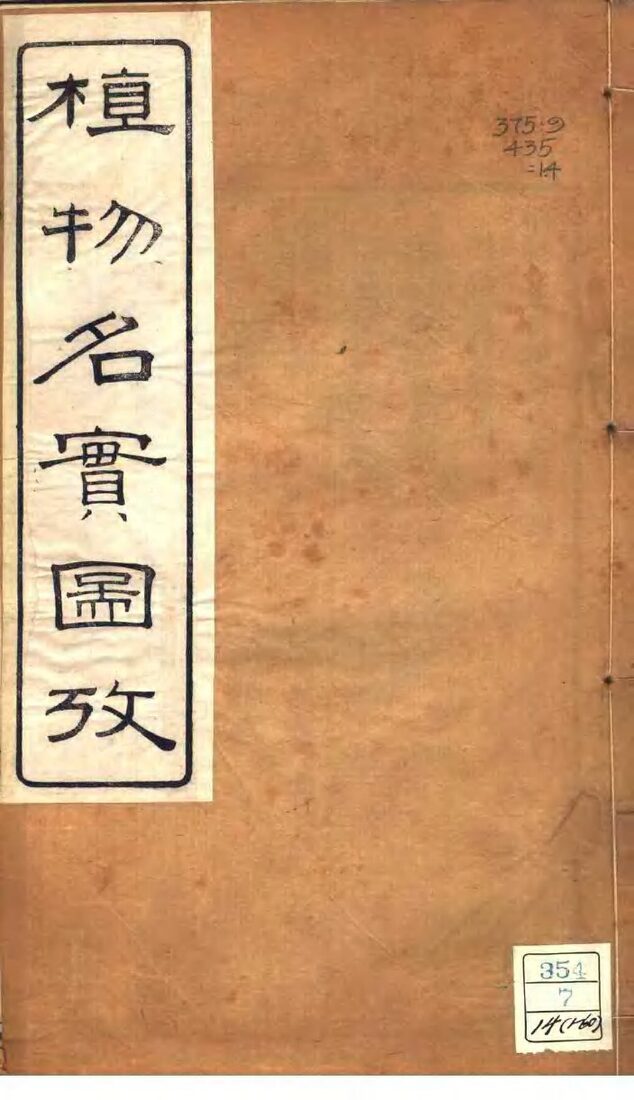 植物名實圖攷
375.9
435
:14
354
7
14(160)